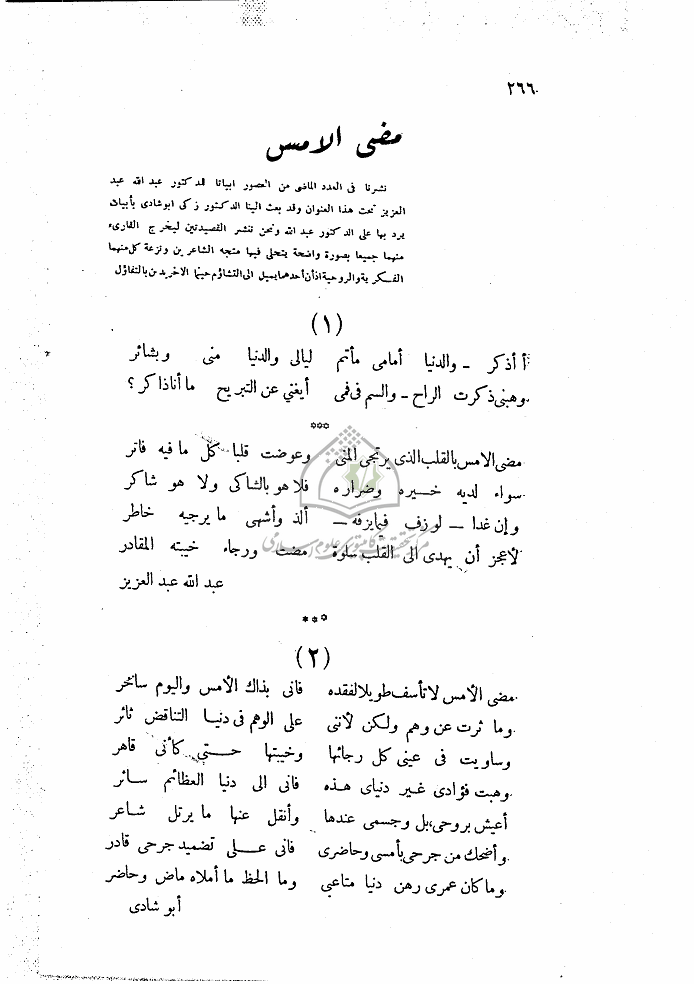 ٢٦٦
مضى الامس
نشرنا فى العدد الماضى من العصور ابياتا للدكتور عبد الله عبد
العزيز تحت هذا العنوان وقد بعث الينا الدكتور زكى ابو شادى بأبيات
يرد بها على الدكتور عبد الله ونحن ننشر القصيدتين ليخرج القارىء
منهما جميعا بصورة واضحة يتجلى فيها متجه الشاعرين ونزعة كل منهما
الفكرية والروحية اذ أن أحدهما يميل الى التشاؤم حينما الاخر يدين بالتفاؤل
(١)
أ أذكر ـ والدنيا أمامى مأتم ليالى والدنيا منى وبشائر
وهبنى ذكرت الراح ـ والسم فى فمى أيغني عن التبريح ما أنا ذاكر؟
***
مضى الامس بالقلب الذى يرتجى المنى وعوضت قلبا كل ما فيه فاتر
سواء لديه خيره وضراره فلا هو بالشاكى ولا هو شاكر
وإن غدا ـ لو زف فيما يزفه ـ ألذ وأشهى ما يرجيه خاطر
لأعجز أن يهدى الى القلب سلوة مضت ورجاء خيبته المقادر
عبد الله عبد العزيز
***
(٢)
مضى الأمس لا تأسف طويلا لفقده فانى بذاك الأمس واليوم ساخر
وما ثرت عن وهم ولكن لأننى على الوهم فى دنيا التناقض ثائر
وساويت فى عينى كل رجائها وخيبتها حتى كأنى قاهر
وهبت فؤادى غير دنياى هذه فانى الى دنيا العظائم سائر
أعيش بروحى، بل وجسمى عندها وأنقل عنها ما يرتل شاعر
وأضحك من جرحى بأمسى وحاضرى فانى على تضميد جرحى قادر
وما كان عمرى رهن دنيا متاعبى وما الحظ ما أملاه ماض وحاضر
أبو شادى
مركز تحقيقات كامپيوترى علوم اسلامى